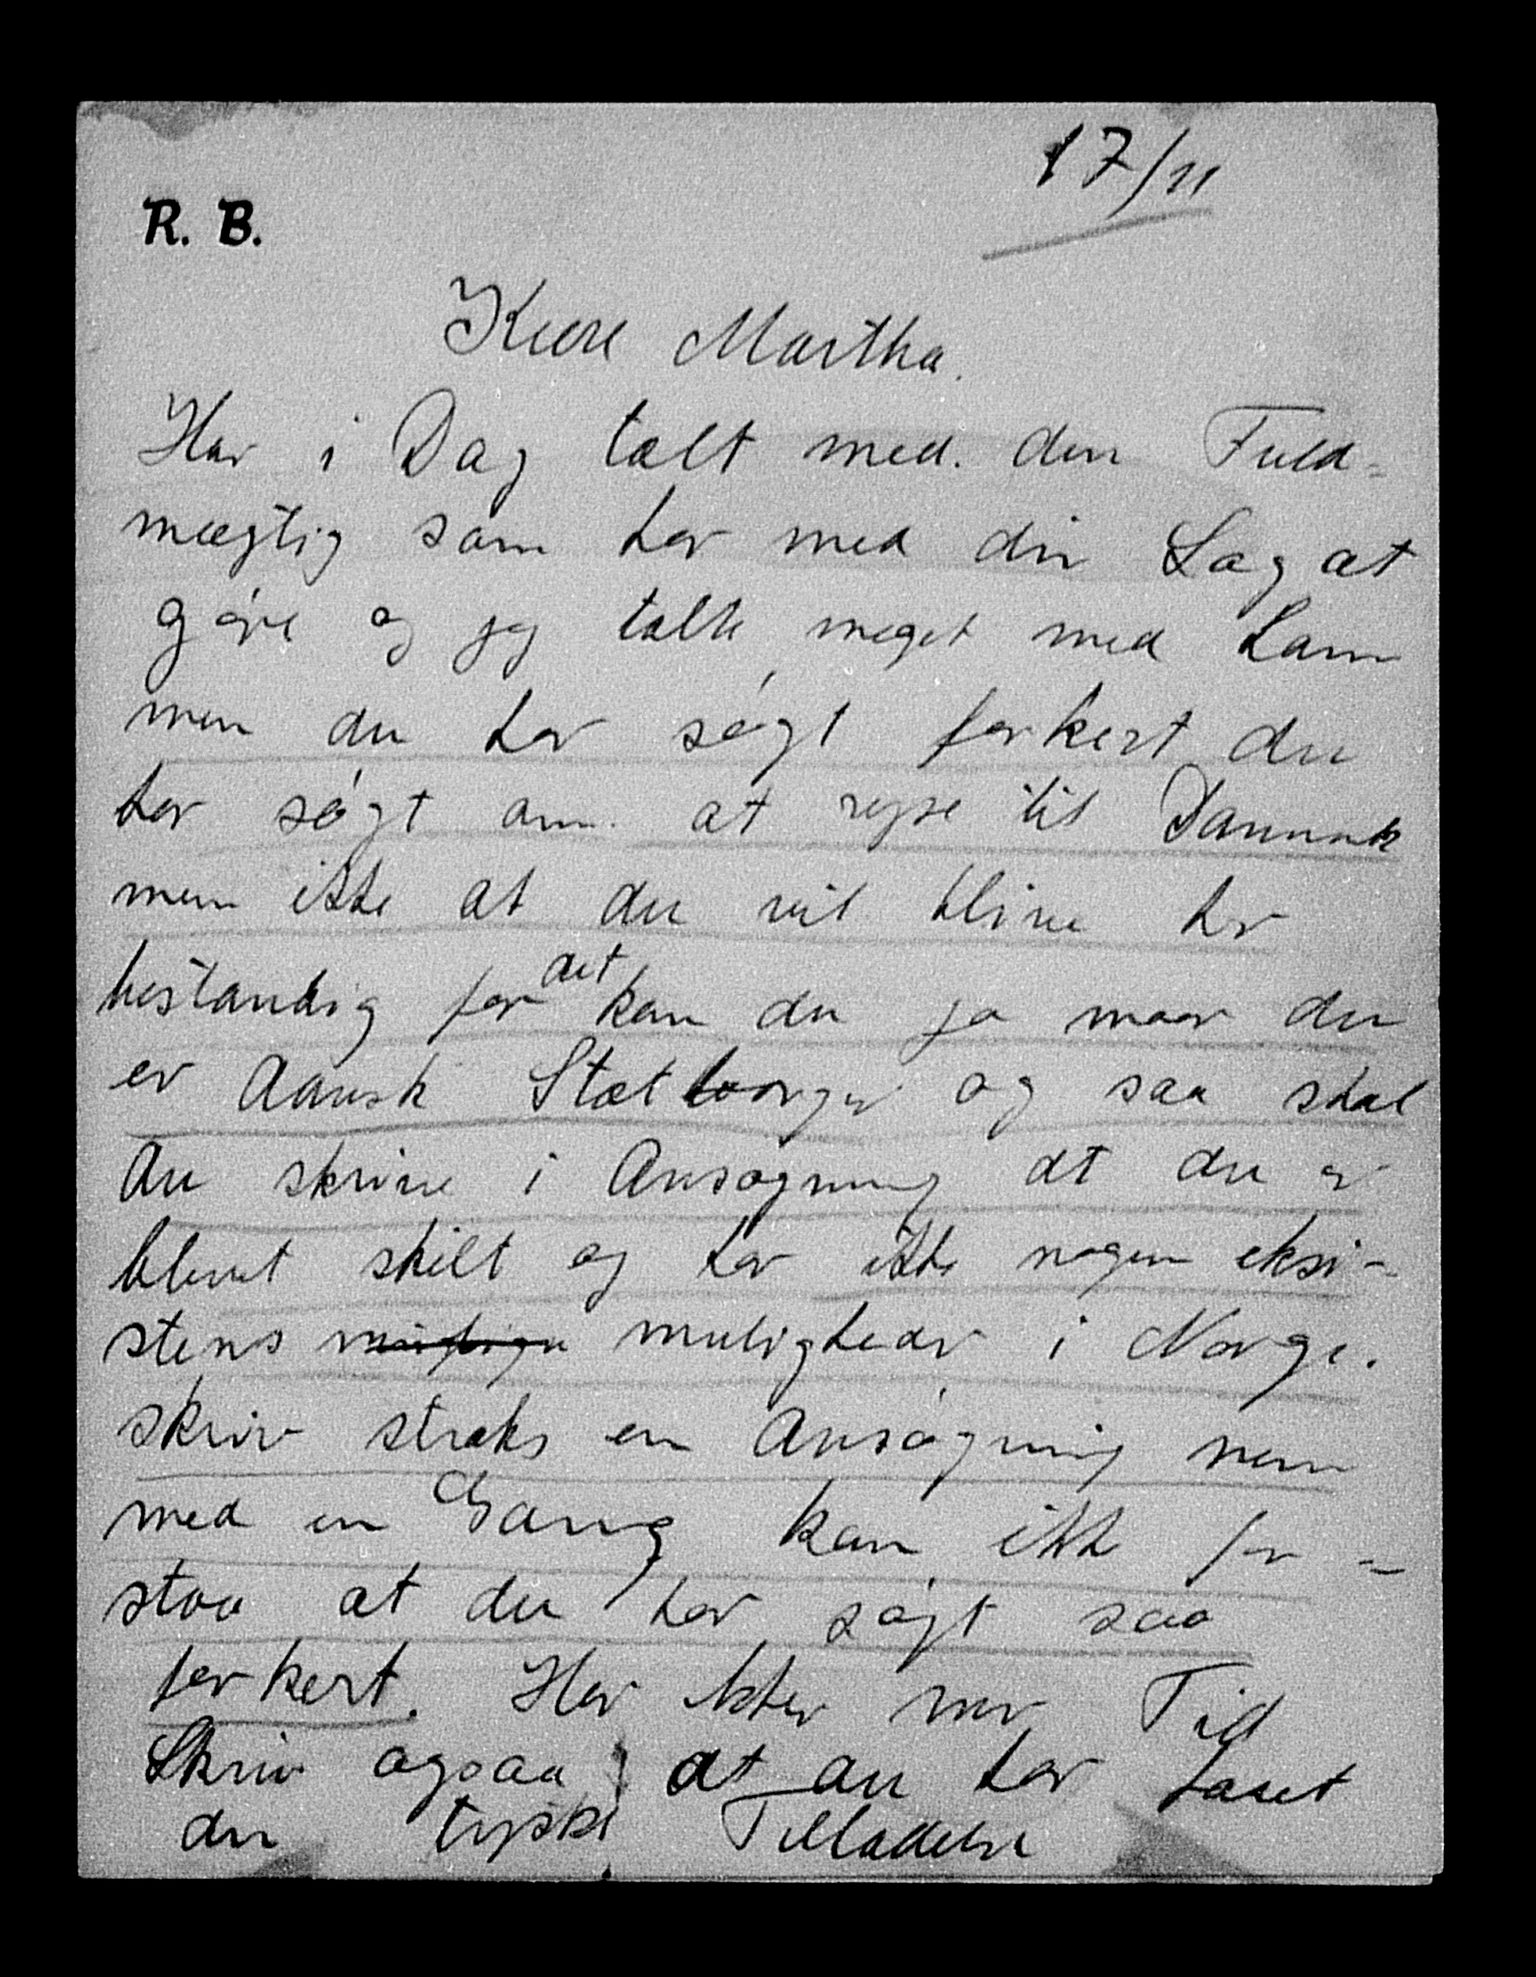 17/11
R. B.
Kære Martha.
Har i Dag talt med. den Fuld=
mægtig som har med din Sag at
gøre og jeg talte meget med ham
men du har søgt forkert du
har søgt om. at rejse til Danmark
men ikke at du vil blive her
bestandig for det kan du jo naar du
er dansk Statborger og saa skal
du skrive i Ansøgning at du er
blevet skilt og har ikke nogen eksi-
stens muligheder i Norge.
skriv straks en Ansøgning
med en Gang kan ikke for=
staa at du har søgt saa
forkert. Har ikke mer Tid
Skriv ogsaa at du har faaet
den tyske Tilladelse